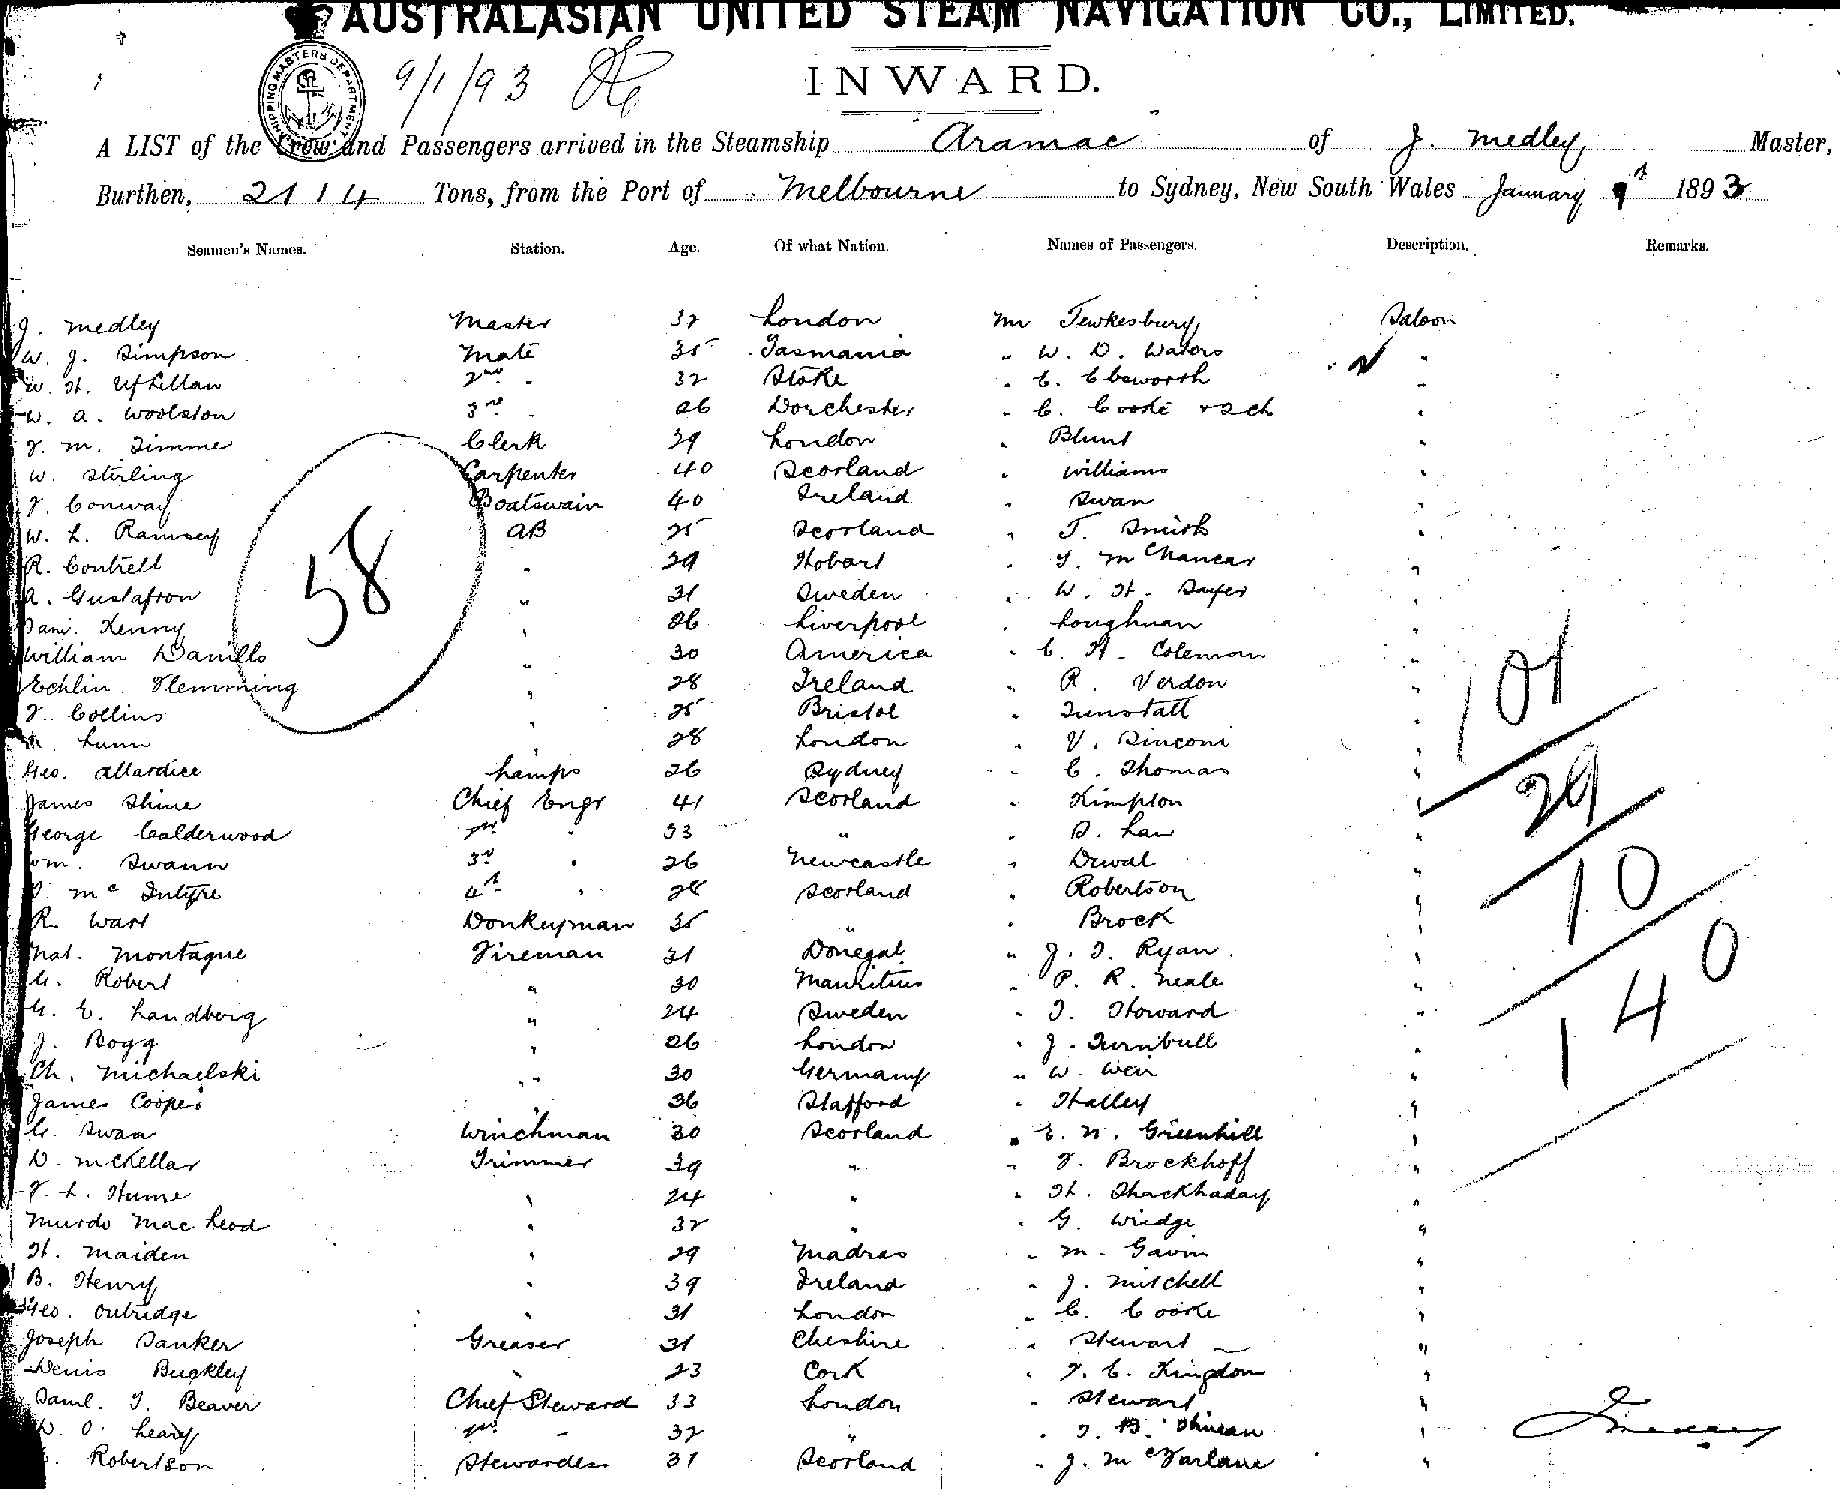 AUSTRALASIAN UNITED STEAM NAVIGATION CO., LIMITED.
SHIPPING MASTERS DEPARTMENT
9/1/93
INWARD.
A LIST of the Crew and Passengers arrived in the Steamship Aramac of J. Medley Master,
Burthen, 2114 Tons, from the Port of Melbourne to Sydney, New South Wales January 9th 1893
Seamen's Names. Station. Age. Of what Nation. Names of Passengers. Description. Remarks.
J. Medley Master 32 London Mr Tewkesbury Saloon
W. J. Simpson Mate 35 Tasmania " W. D. Waters "
W. H. 2nd " 32 Stoke " C. Ebsworth "
W. A. Woolston 3rd " 26 Dorchester " C. Cooke + 2 ch "
F. M. Timme Clerk 29 London " Blunt "
W. Sterling Carpenter 40 Scotland " Williams "
F. Conway Boatswain 40 Ireland " Swan "
W. L. Ramsey AB 25 Scotland " T. Smith "
R. Contrell " 29 Hobart "
A. Gustafson " 31 Sweden " W. H. Sayer "
Kenny " 26 Liverpool " Loughnan "
William Daniells " 30 America " C. H. Coleman "
Echlin Flemming " 28 Ireland " R. Verdon "
F. Collins " 25 Bristol " Tunstall "
Lunn " 28 London " V. Sinconi "
Geo. Allardice Lamps 26 Sydney " C. Thomas "
James Shine Chief Engr 41 Scotland " Kimpton "
George Calderwood 2nd " 33 " " S. Law "
Wm. Swann 3rd " 26 Newcastle " "
Mc Intyre 4th " 28 Scotland " Robertson "
R. Wart Donkeyman 35 " " Brock "
Nat. Montague Fireman 31 Donegal " J. T. Ryan "
Robert " 30 Mauritius " P. R. Neale "
C. E. Landberg " 24 Sweden " T. Howard "
J. Bogg " 26 London " J. Turnbull "
Ch. Michaelski " 30 Germany " W. Weir "
James Cooper " 36 Stafford " Halley "
G. Swan Winchman 30 Scotland " E. N. Greenhill "
D. McKellar Trimmer 39 " " F. Brockhoff "
F. L. Hume " 24 " " H. "
Murdo MacLeod " 32 " " G. Wridge "
H. Maiden " 29 Madras " M. Gavin "
B. Henry " 39 Ireland " J. Mitchell "
Geo. Outridge " 31 London " C. Cooke "
Joseph Tanker Greaser 31 Cheshire " Stewart "
Denis Buckley " 23 Cork " F. C. Kingdon "
Saml. T. Beaver Chief Steward 33 London " Stewart "
O. Leary 2nd " 32 " "
Robertson Stewardess 31 Scotland " J. McFarlane "
58
101
29
10
140